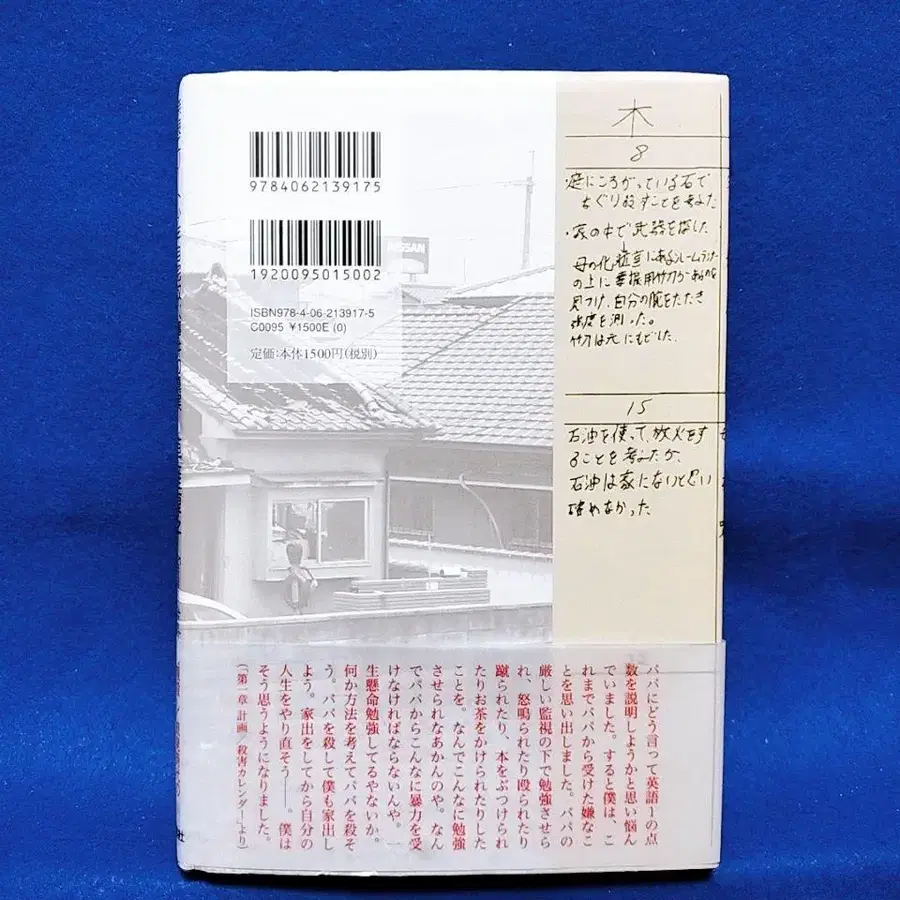 9784062139175
1920095015002
ISBN978-4-06-213917-5
C0095 ¥1500E (0)
定価：本体1500円(税別)
NISSAN
木
8
・庭にころがっている石で
なぐり殺すことを考えた
・家の中で武器を探した
母の化粧室にあるクレームラックの
の上に葦操用竹刀があるのを
見つけ、自分の腕をたたき
強度を測った。
竹刀は元にもどした。
15
石油を使って、放火をす
ることを考えたが、
石油は家にないと思い
確めなかった
パパにどう言って英語1の点
数を説明しようかと思い悩ん
でいました。すると僕は、こ
れまでパパから受けた嫌なこ
とを思い出しました。パパの
厳しい監視の下で勉強させら
れ、怒鳴られたり殴られたり
蹴られたり、本をぶつけられ
たりお茶をかけられたりした
ことを。なんでこんなに勉強
させられなあかんのや。なん
でパパからこんなに暴力を受
けなければならないんや。一
生懸命勉強してるやないか。
何か方法を考えてパパを殺そ
う。パパを殺して僕も家出し
よう。家出をしてから自分の
人生をやり直そう――。僕は
そう思うようになりました。
(「第一章 計画／殺害カレンダー」より)
社